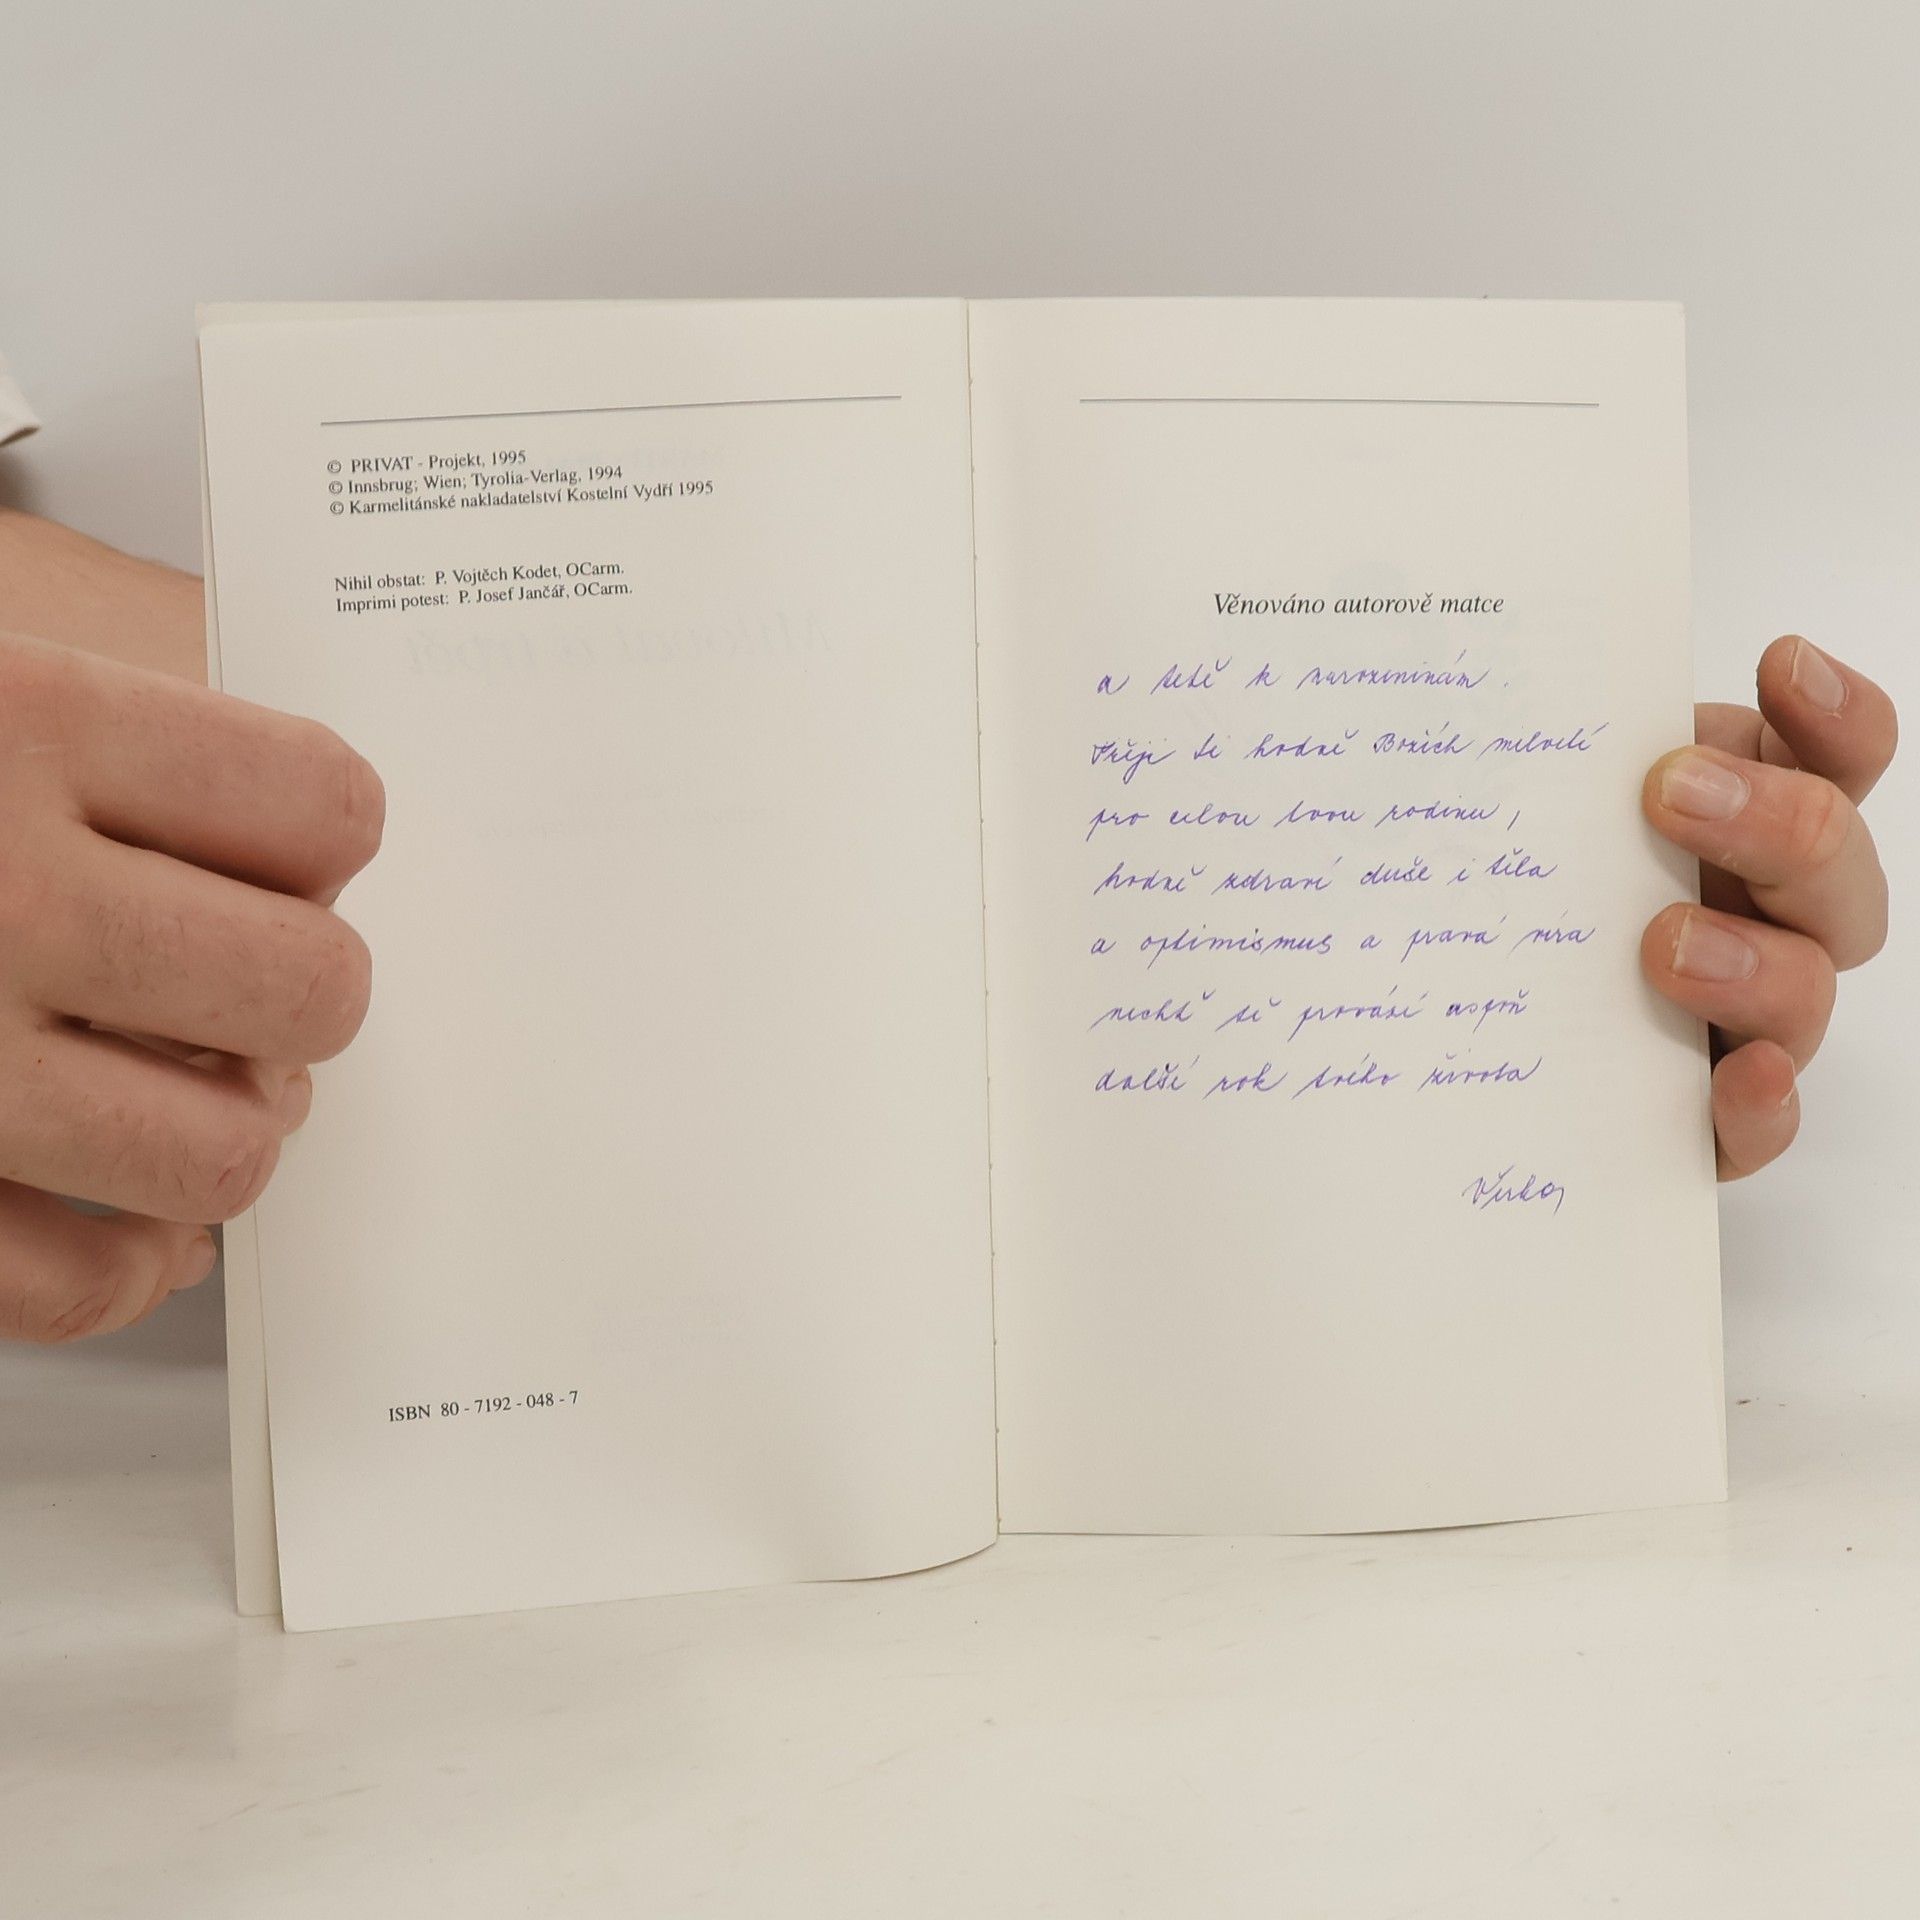 © PRIVAT - Projekt, 1995
© Innsbrug; Wien; Tyrolia-Verlag, 1994
© Karmelitánské nakladatelství Kostelní Vydří 1995
Nihil obstat: P. Vojtěch Kodet, OCarm.
Imprimi potest: P. Josef Jančář, OCarm.
ISBN 80 - 7192 - 048 - 7
Věnováno autorově matce
a tetě k narozeninám.
Přeji ti hodně Božích milostí
pro celou tvou rodinu,
hodně zdraví duše i těla
a optimismus a pravá víra
nechť tě provází aspoň
další rok tvého života
Věrka